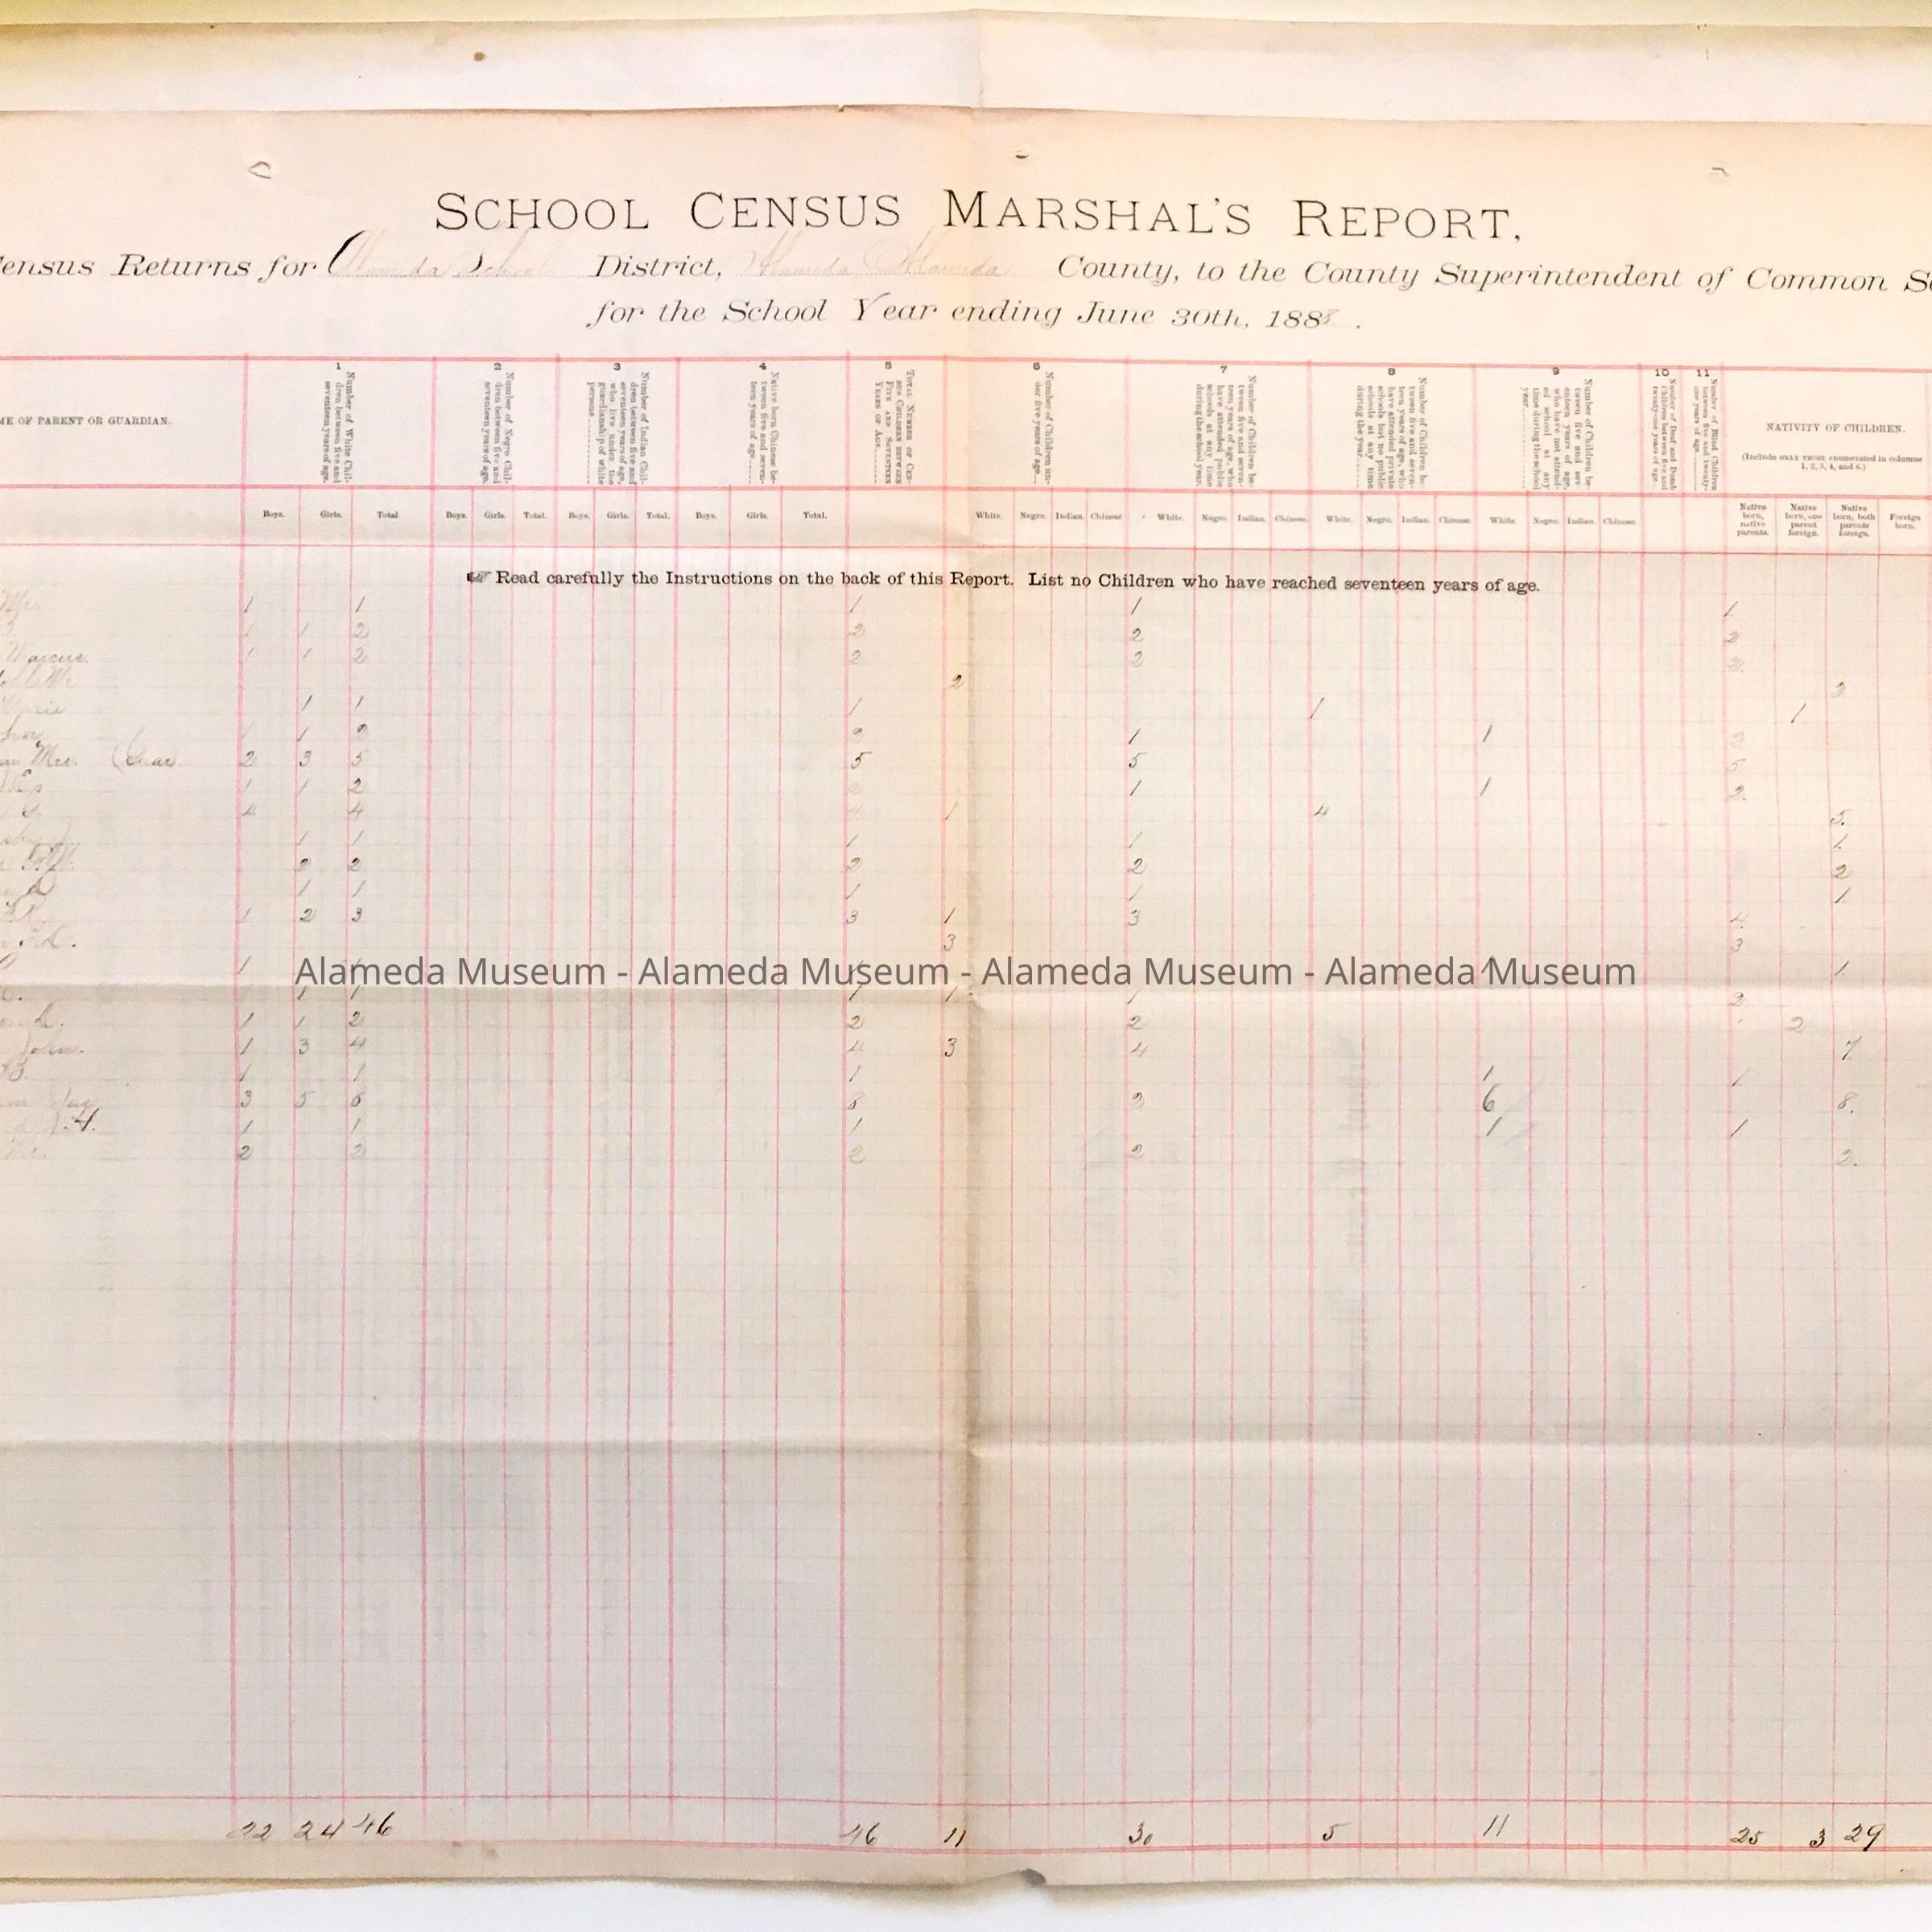 SCHOOL CENSUS MARSHAL'S REPORT.
ensus Returns for Alameda School District, Alameda Alameda County, to the County Superintendent of Common
for the School Year ending June 30th, 1888.
ME OF PARENT OR GUARDIAN.
1 Number of White Children between five and seventeen years of age.
2 Number of Negro Children between five and seventeen years of age.
3 Number of Indian Children between five and seventeen years of age, who live under the guardianship of white persons
4 Native born Chinese between five and seventeen years of age
5 TOTAL NUMBER OF CENSUS CHILDREN BETWEEN FIVE AND SEVENTEEN YEARS OF AGE
6 Number of Children under five years of age.
7 Number of Children between five and seventeen years of age, who have attended public schools at any time during the school year.
8 Number of Children between five and seventeen years of age, who have attended private schools but no public schools at any time during the year.
9 Number of Children between five and seventeen years of age, who have not attended school at any time during the school year
10 Number of Deaf and Dumb Children between five and twenty-one years of age.
11 Number of Blind Children between five and twenty-one years of age.
NATIVITY OF CHILDREN.
(Include ONLY THOSE enumerated in columns 1, 2, 3, 4, and 6.)
Boys. Girls. Total. Boys. Girls. Total. Boys. Girls. Total. Boys. Girls. Total. White. Negro. Indian. Chinese. White. Negro. Indian. Chinese. White. Negro. Indian. Chinese. White. Negro. Indian. Chinese. Native born, native parents. Native born, one parent foreign. Native born, both parents foreign. Foreign born.
Read carefully the Instructions on the back of this Report. List no Children who have reached seventeen years of age.
Mrs. 1 1 1 1 1
1 1 2 2 2 2
Marcus. 1 1 2 2 2 2
2 2
1 1 1 1 1
1 2 2 1 1 2
Mrs. 2 3 5 5 5 5
1 1 2 2 1 1 2
4 4 4 1 4 5
1 1 1 1 1
2 2 2 2 2
1 1 1 1 1
1 2 3 3 1 3 4
3 3
1 1 1 1 1
Alameda Museum - Alameda Museum - Alameda Museum - Alameda Museum
1 1 1 1 1 2
1 1 2 2 2 2
John. 1 3 4 4 3 4 7
B. 1 1 1 1 1
3 5 8 8 2 6 8.
J.H. 1 1 1 1 1
2 2 2 2 2.
22 24 46 46 11 30 5 11 25 3 29